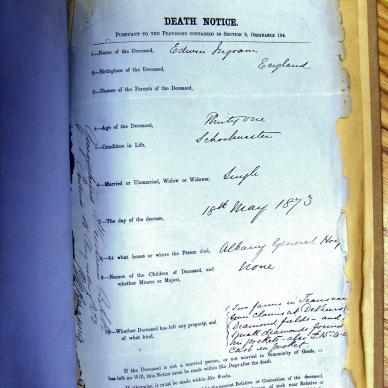 DEATH NOTICE.
PURSUANT TO THE PROVISIONS CONTAINED IN SECTION 9, ORDINANCE 104.
1—Name of the Deceased, Edwin Ingram
2—Birthplace of the Deceased, England
3—Names of the Parents of the Deceased,
4—Age of the Deceased, Thirty One
5—Condition in Life, Schoolmaster
6—Married or Unmarried, Widow or Widower, Single
7—The day of the decease, 18th May 1873
8—At what house or where the Person died, Albany General Hosp
9—Names of the Children of Deceased, and
whether Minors or Majors, None
10—Whether Deceased has left any property, and
of what kind,
Two farms in
claims at
Diamond fields – and
small diamonds found
in pockets – also £15
Cash in pocket
If the Deceased is not a married person, or not married in Community of Goods,
has left no Will, this Notice must be made within Six Days after the death.
If otherwise, it must be made within Six
nearest Relative or Connection of the deceased,